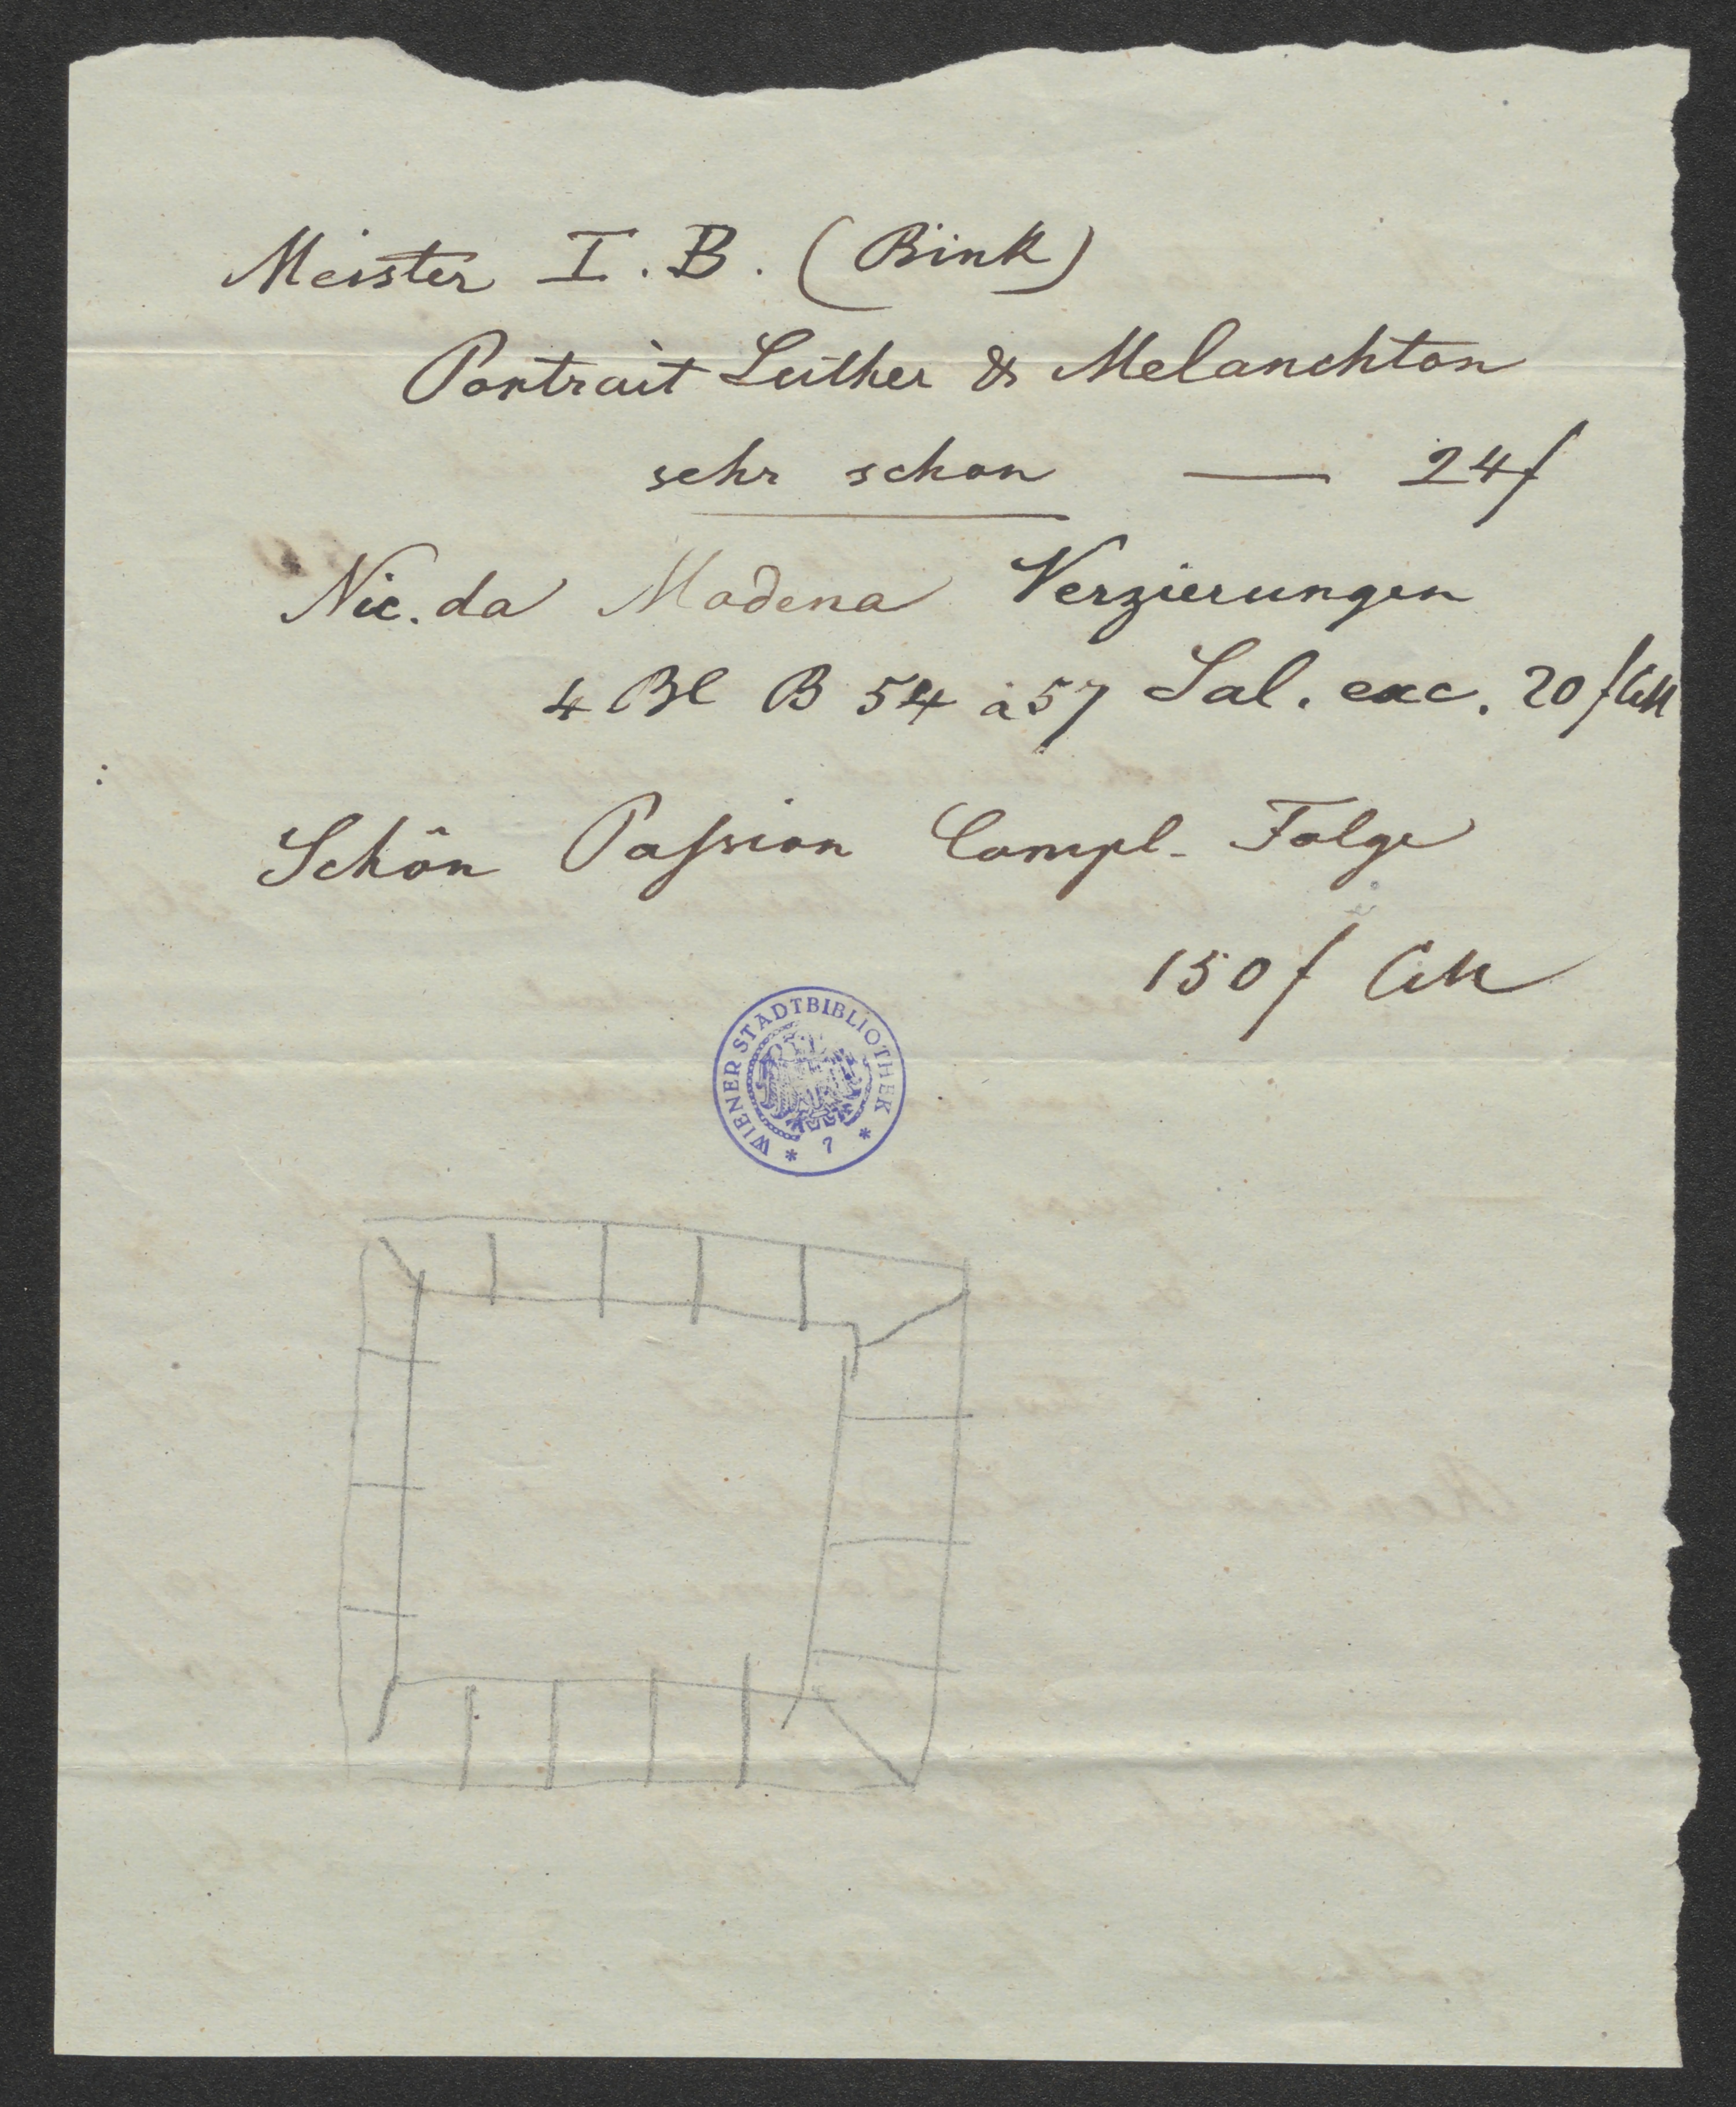 Meister I. B. (Bink)
Portrait Luther & Melanchton
sehr schon — 24f
Nic. da Modena Verzierungen
4 Bl B 54 à 57 Sal. exc. 20f CM
Schön Paſsion Compl. Folge
150f CM
WIENER STADTBIBLIOTHEK * 7 *